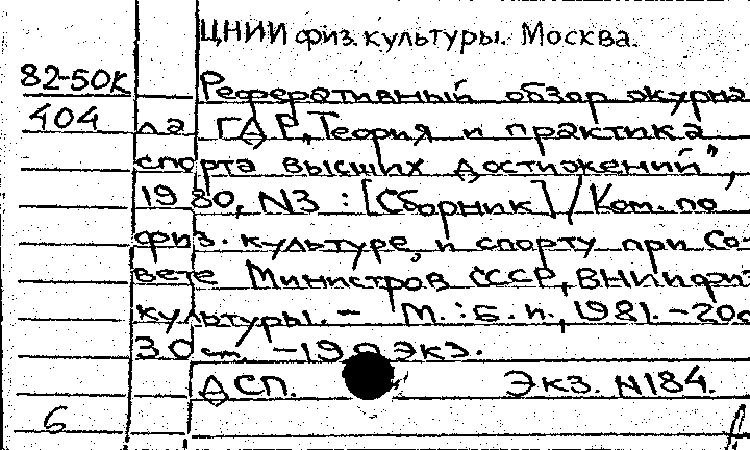 ЦНИИ физ. культуры. Москва.
82-50К Реферативный обзор журна
404 ла ГДР, "Теория и практика
спорта высших достижений",
1980, N3 : [Сборник] / Ком. по
физ. культуре, и спорту при Со-
вете Министров СССР, ВНИИфиз
культуры. - М. : Б. и., 1981. - 20с
30 см. - 190 экз.
ДСП. Экз. N184.
6